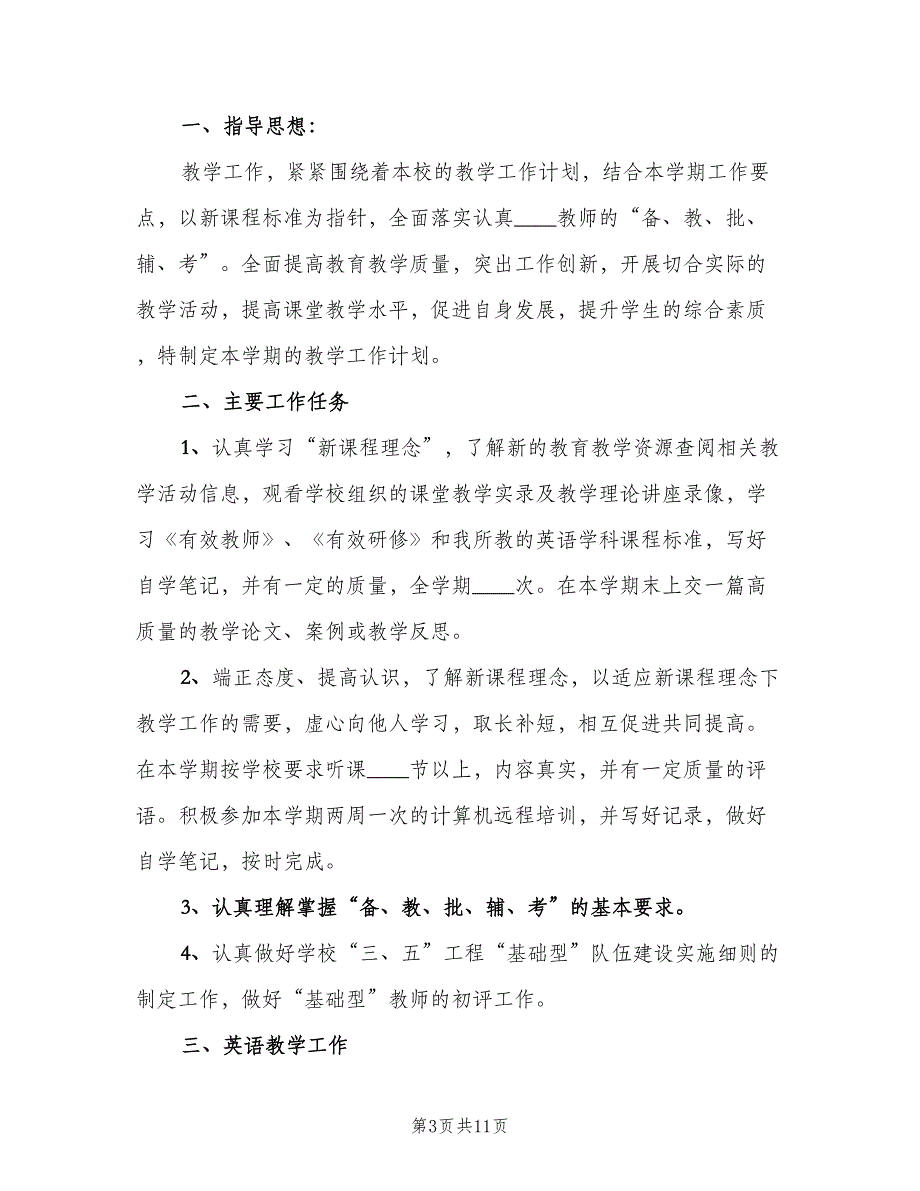 一、指导思想：
教学工作，紧紧围绕着本校的教学工作计划，结合本学期工作要
点，以新课程标准为指针，全面落实认真____教师的“备、教、批、
辅、考”。全面提高教育教学质量，突出工作创新，开展切合实际的
教学活动，提高课堂教学水平，促进自身发展，提升学生的综合素质
，特制定本学期的教学工作计划。
二、主要工作任务
1、认真学习“新课程理念”，了解新的教育教学资源查阅相关教
学活动信息，观看学校组织的课堂教学实录及教学理论讲座录像，学
习《有效教师》、《有效研修》和我所教的英语学科课程标准，写好
自学笔记，并有一定的质量，全学期____次。在本学期末上交一篇高
质量的教学论文、案例或教学反思。
2、端正态度、提高认识，了解新课程理念，以适应新课程理念下
教学工作的需要，虚心向他人学习，取长补短，相互促进共同提高。
在本学期按学校要求听课____节以上，内容真实，并有一定质量的评
语。积极参加本学期两周一次的计算机远程培训，并写好记录，做好
自学笔记，按时完成。
3、认真理解掌握“备、教、批、辅、考”的基本要求。
4、认真做好学校“三、五”工程“基础型”队伍建设实施细则的
制定工作，做好“基础型”教师的初评工作。
三、英语教学工作
第3页共11页